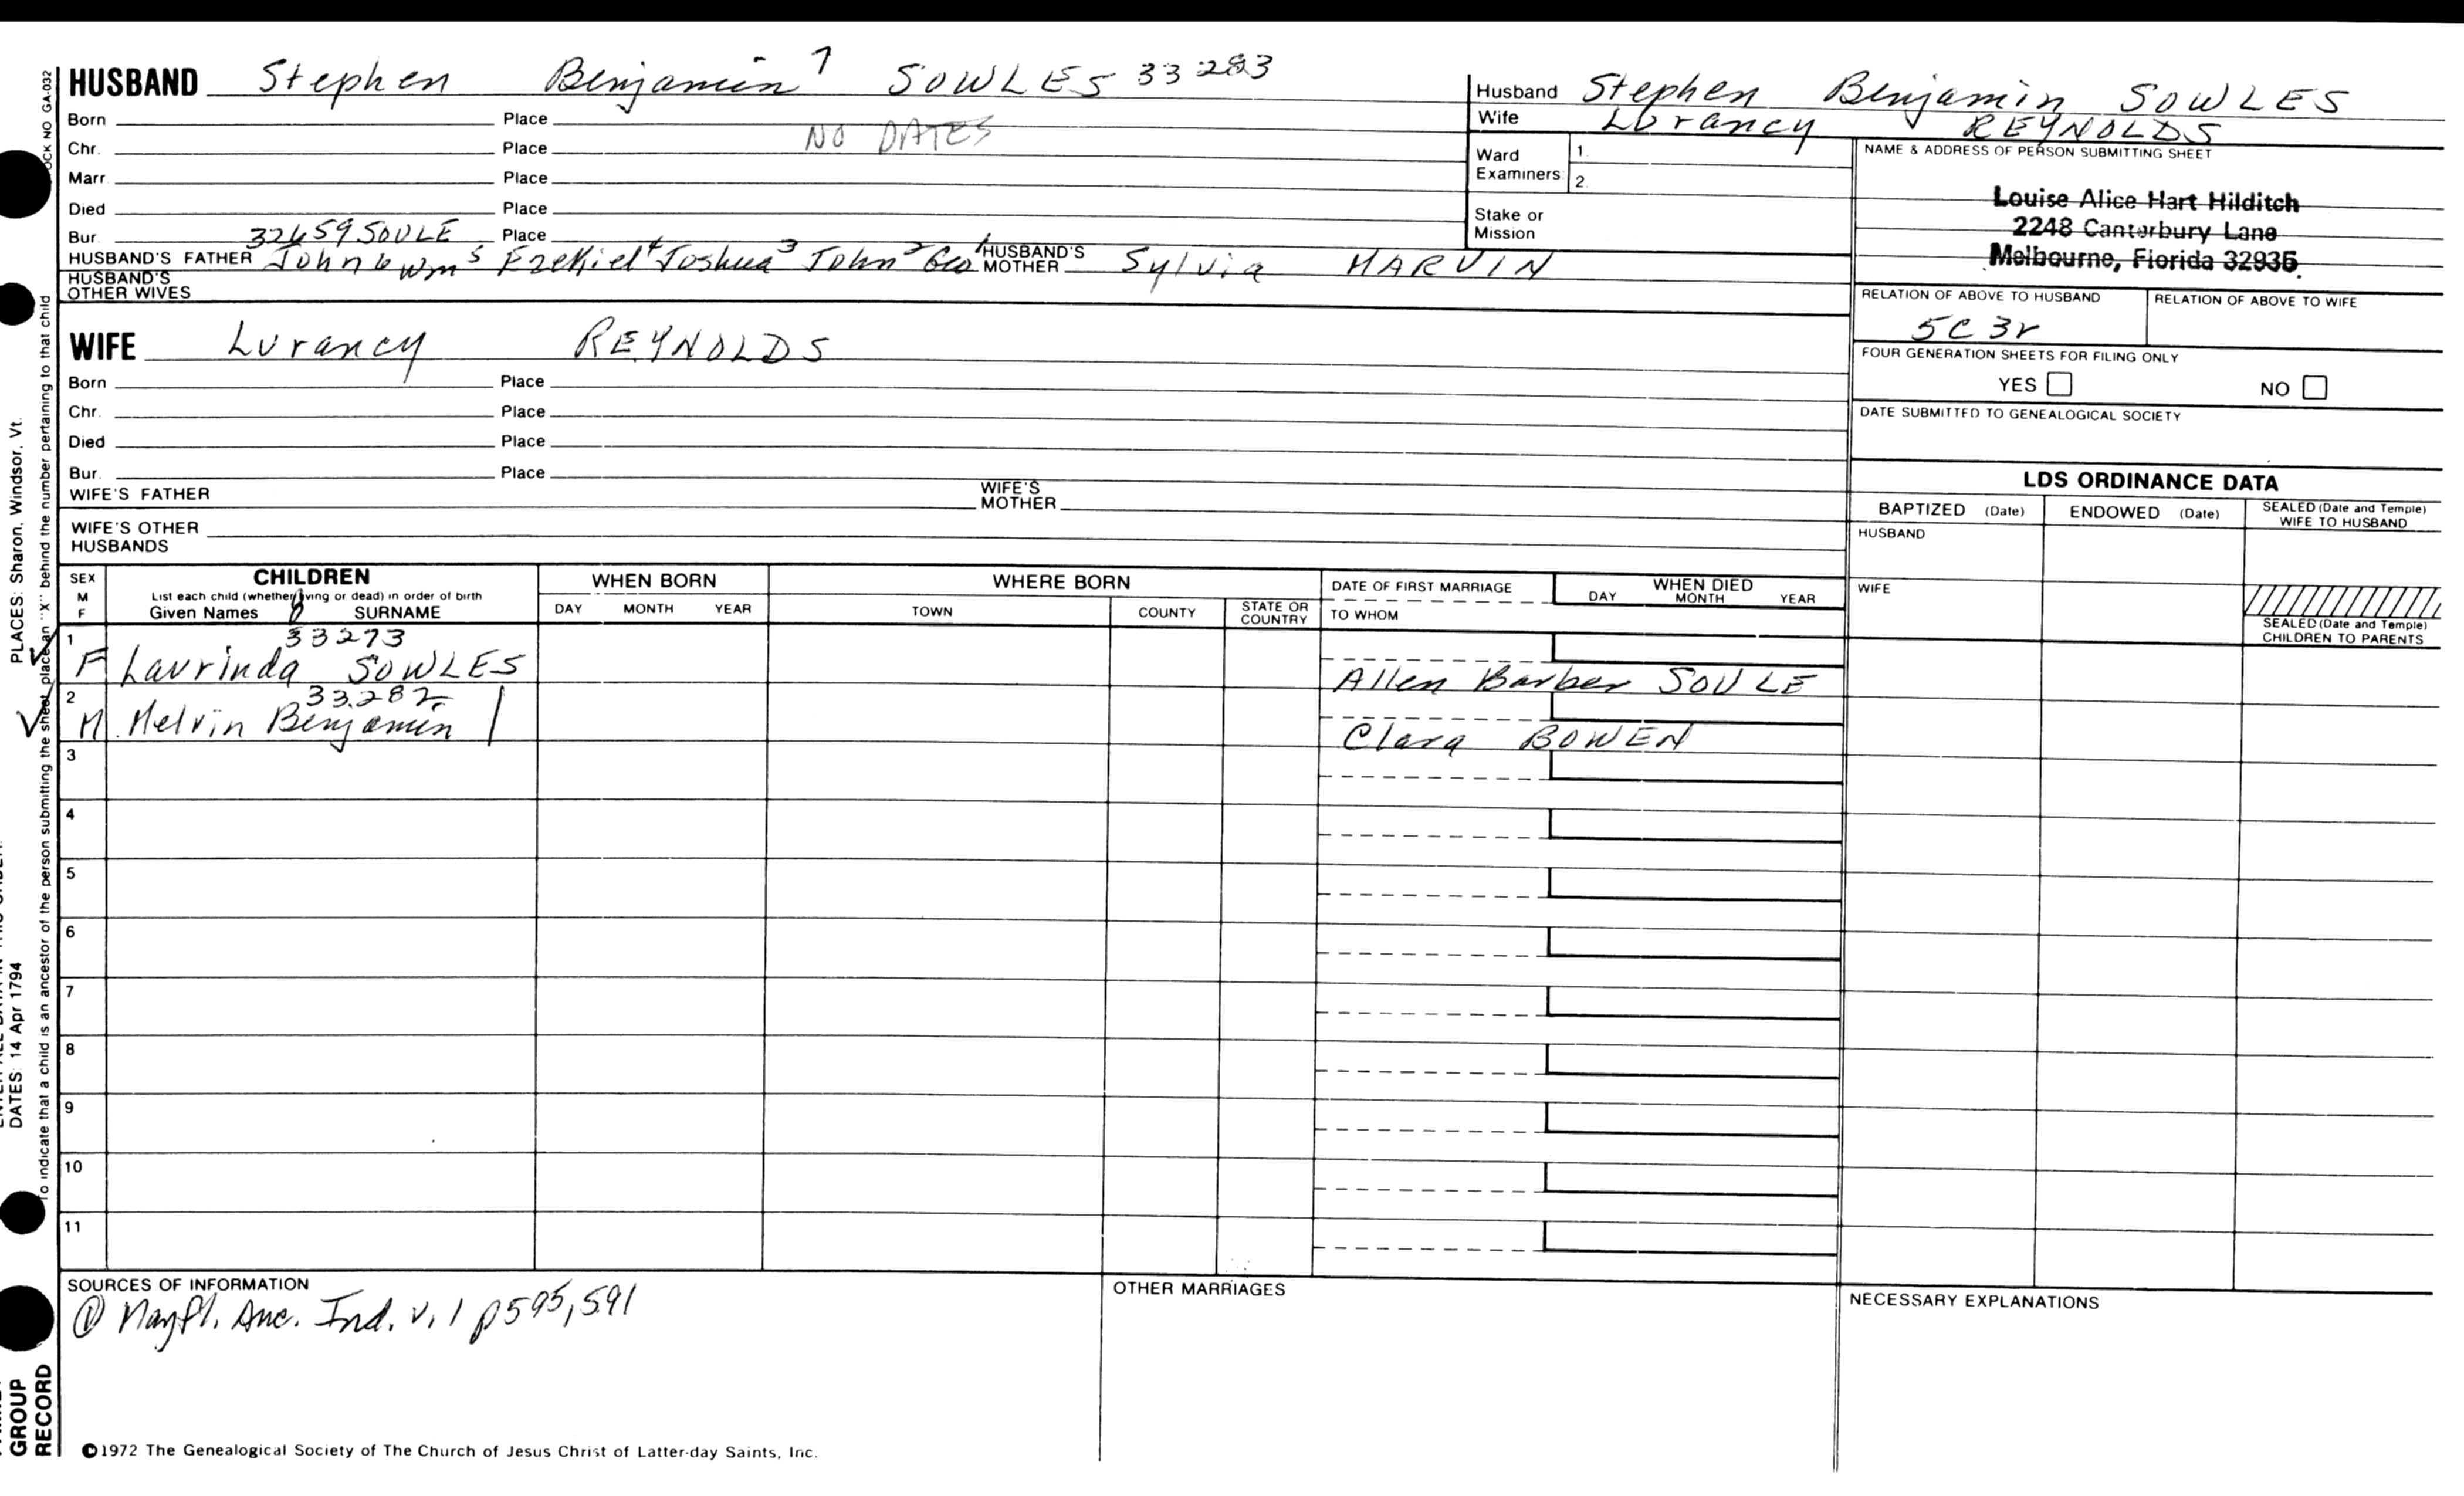 HUSBAND Stephen Benjamin 7 SOWLES 33283
Born Place
NO DATES
Chr. Place
Marr Place
Died Place
Bur. Place
32659 SOULE
HUSBAND'S FATHER John 6 Wm 5 Ezekiel 4 Joshua 3 John 2 Geo 1 HUSBAND'S MOTHER Sylvia MARVIN
HUSBAND'S OTHER WIVES
WIFE Lurancy REYNOLDS
Born Place
Chr. Place
Died Place
Bur. Place
WIFE'S FATHER WIFE'S MOTHER
WIFE'S OTHER HUSBANDS
Husband Stephen Benjamin SOWLES
Wife Lurancy REYNOLDS
Ward Examiners 1. 2.
Stake or Mission
NAME & ADDRESS OF PERSON SUBMITTING SHEET
Louise Alice Hart Hilditch
2248 Canterbury Lane
Melbourne, Florida 32935
RELATION OF ABOVE TO HUSBAND RELATION OF ABOVE TO WIFE
5C 3r
FOUR GENERATION SHEETS FOR FILING ONLY
YES NO
DATE SUBMITTED TO GENEALOGICAL SOCIETY
LDS ORDINANCE DATA
BAPTIZED (Date) ENDOWED (Date) SEALED (Date and Temple) WIFE TO HUSBAND
HUSBAND
WIFE
SEALED (Date and Temple) CHILDREN TO PARENTS
SEX M F
CHILDREN
List each child (whether living or dead) in order of birth
Given Names 8 SURNAME
WHEN BORN
DAY MONTH YEAR
WHERE BORN
TOWN COUNTY STATE OR COUNTRY
DATE OF FIRST MARRIAGE
TO WHOM
WHEN DIED
DAY MONTH YEAR
1 33273
F Laurinda SOWLES Allen Barber SOULE
2 33282
M Melvin Benjamin | Clara BOWEN
3
4
5
6
7
8
9
10
11
SOURCES OF INFORMATION
① Mayfl. Anc. Ind. v. 1 p595,591
OTHER MARRIAGES
NECESSARY EXPLANATIONS
©1972 The Genealogical Society of The Church of Jesus Christ of Latter-day Saints, Inc.
OCK NO GA-032
To indicate that a child is an ancestor of the person submitting the sheet, place an "X" behind the number pertaining to that child
PLACES: Sharon, Windsor, Vt.
DATES: 14 Apr 1794
GROUP
RECORD